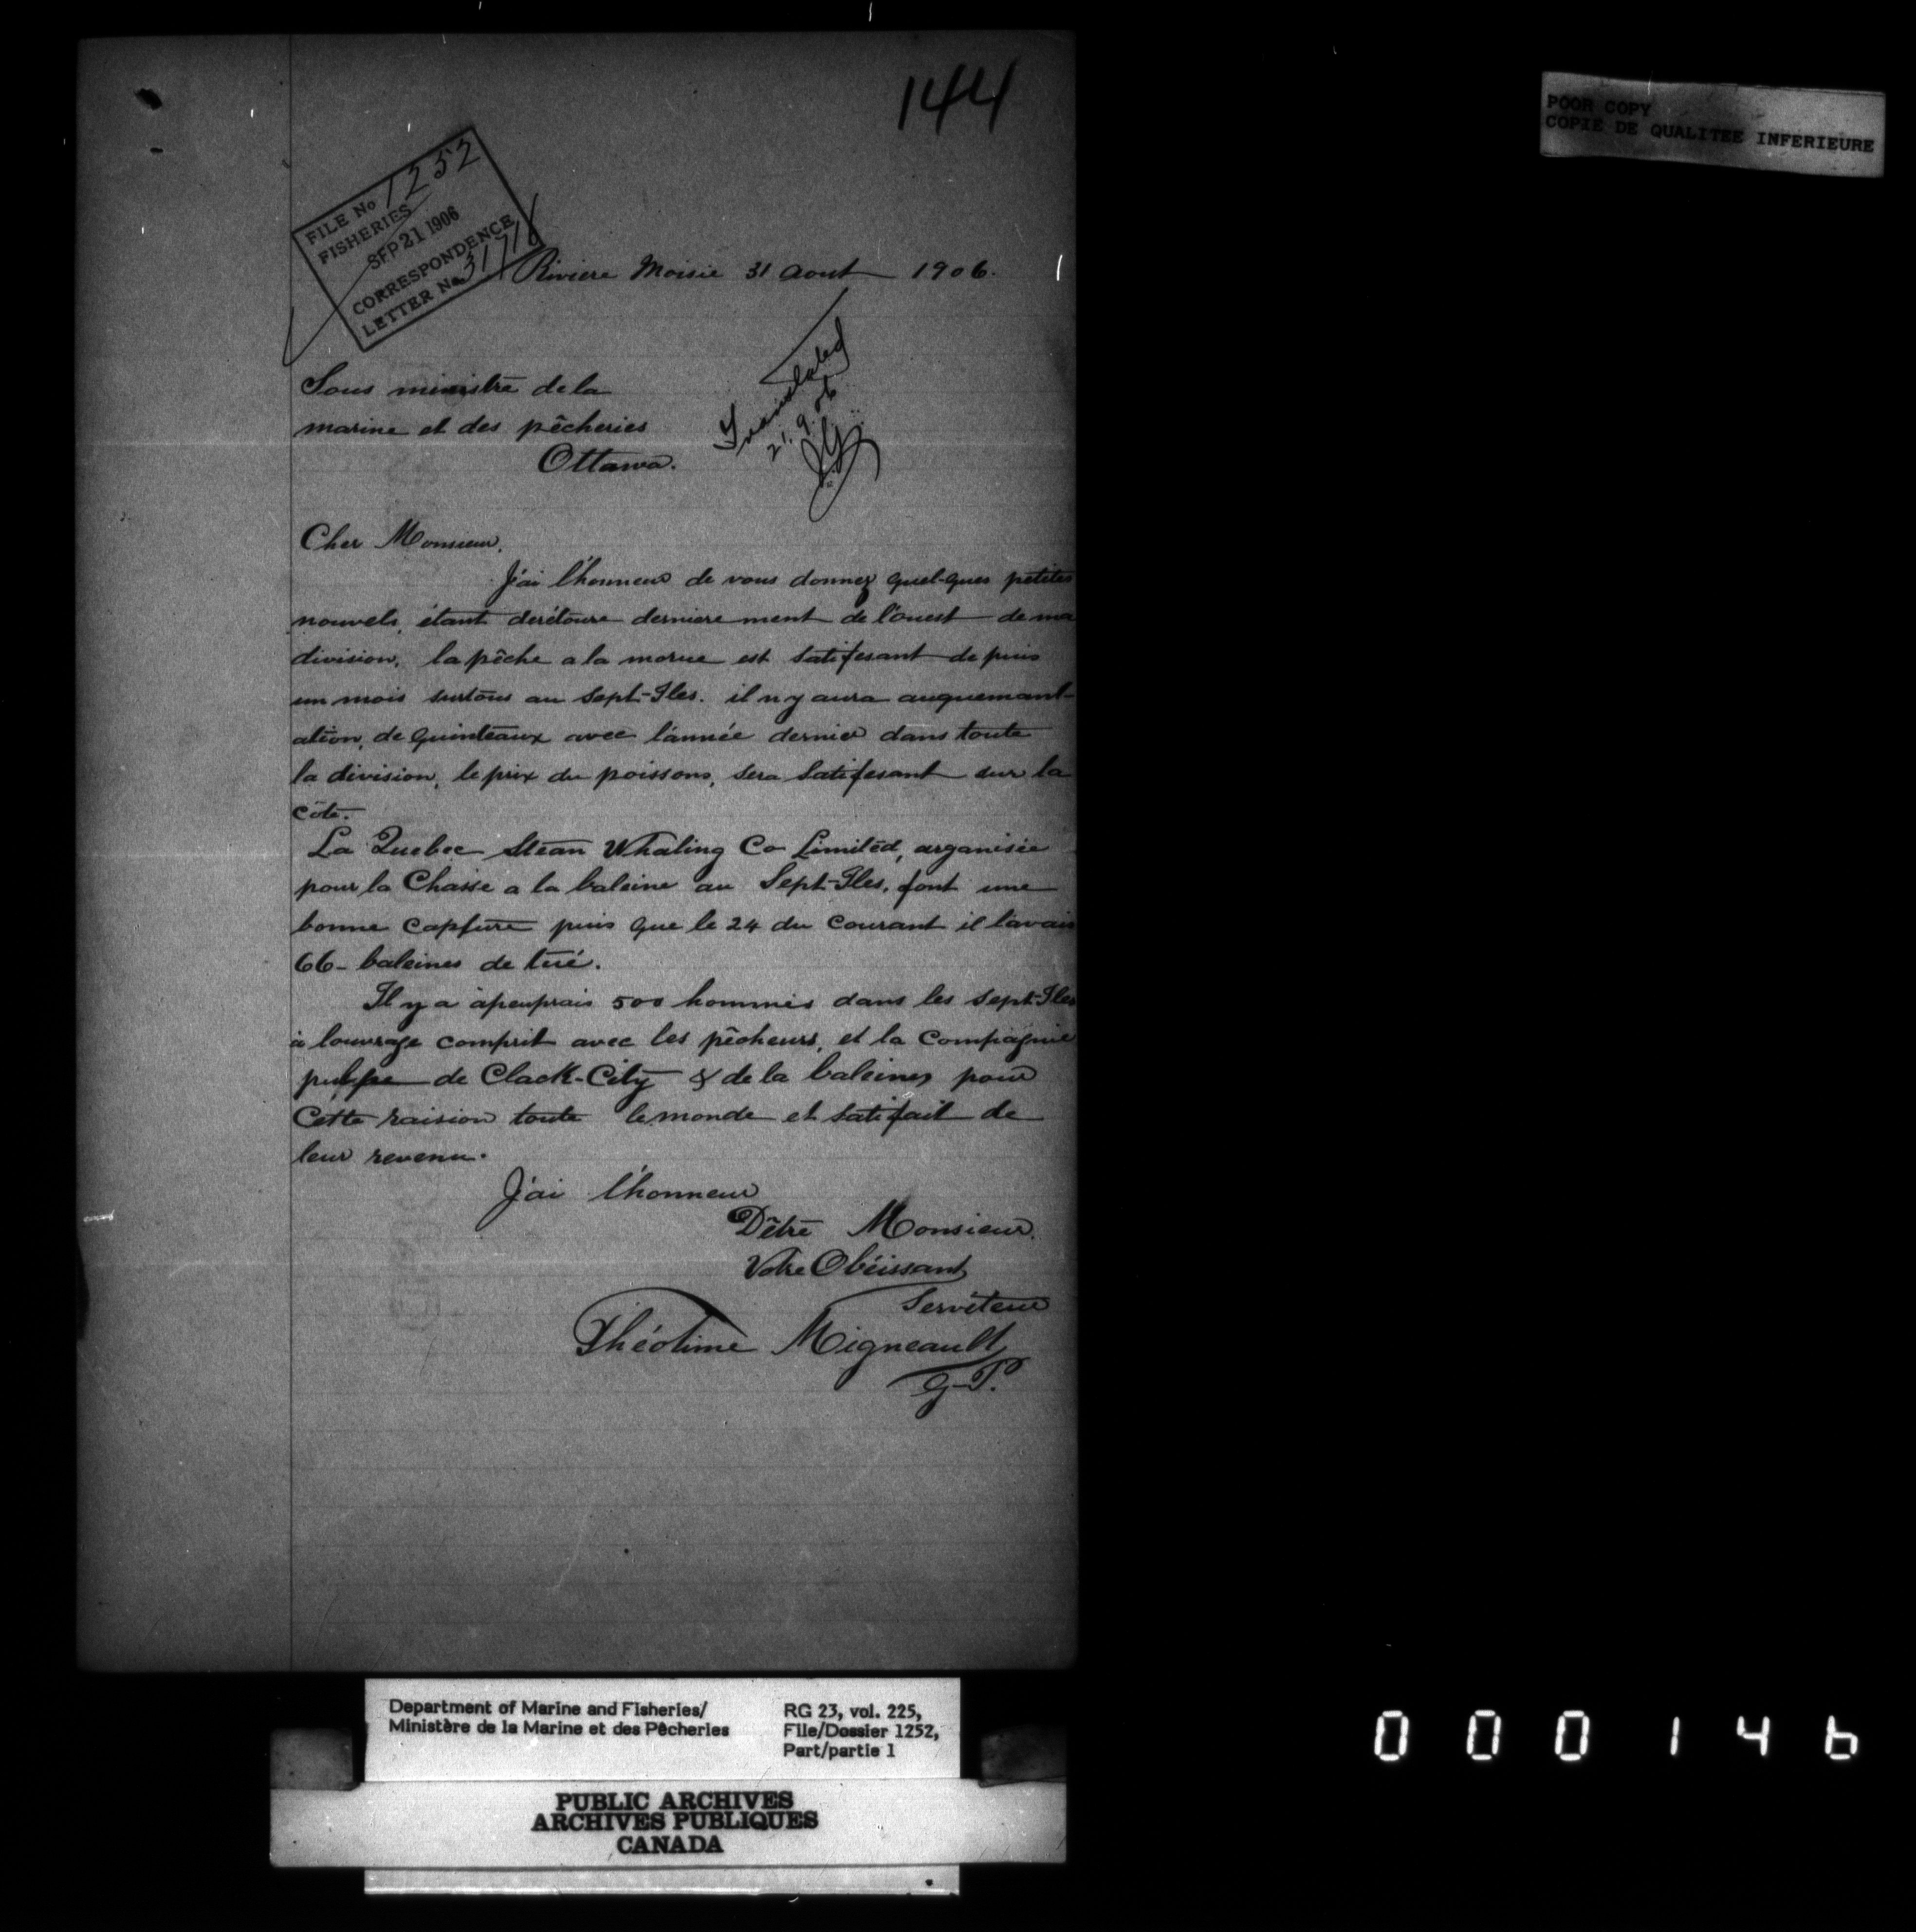 144
POOR COPY
COPIE DE QUALITEE INFERIEURE
FILE No 1252
FISHERIES
SEP 21 1906
CORRESPONDENCE
LETTER No 31716
Riviere Moisie 31 aout 1906.
Translated
21.9.06
Sous ministre de la
marine et des pêcheries
Ottawa.
Cher Monsieur.
J'ai l'honneur de vous donnez quel-ques petites
nouvels, étant derétoure derniere ment de l'ouest de ma
division, la pêche a la morue est satifesant de puis
un mois surtous au Sept-Iles. il n y aura auguemant-
ation, de quinteaux avec l'année dernier dans toute
la division, le prix du poissons, sera satifesant sur la
côte.
La Quebec Stean Whaling Co Limited, arganisée
pour la Chasse a la baleine au Sept-Iles, font une
bonne capture puis que le 24 du courant il l'avais
66- baleines de tué.
Il y a apeuprais 500 hommes dans les Sept-Iles
à louvrage comprit avec les pêcheurs, et la Compagnie
pulpe de Clack-City & de la baleines pour
Cette raision toute le monde et satifait de
leur revenu.
J'ai l'honneur
D'être Monsieur.
Votre Obéissant
Serviteur
Théotime Migneault
G-P.
Department of Marine and Fisheries/
Ministère de la Marine et des Pêcheries
RG 23, vol. 225,
File/Dossier 1252,
Part/partie 1
PUBLIC ARCHIVES
ARCHIVES PUBLIQUES
CANADA
000146